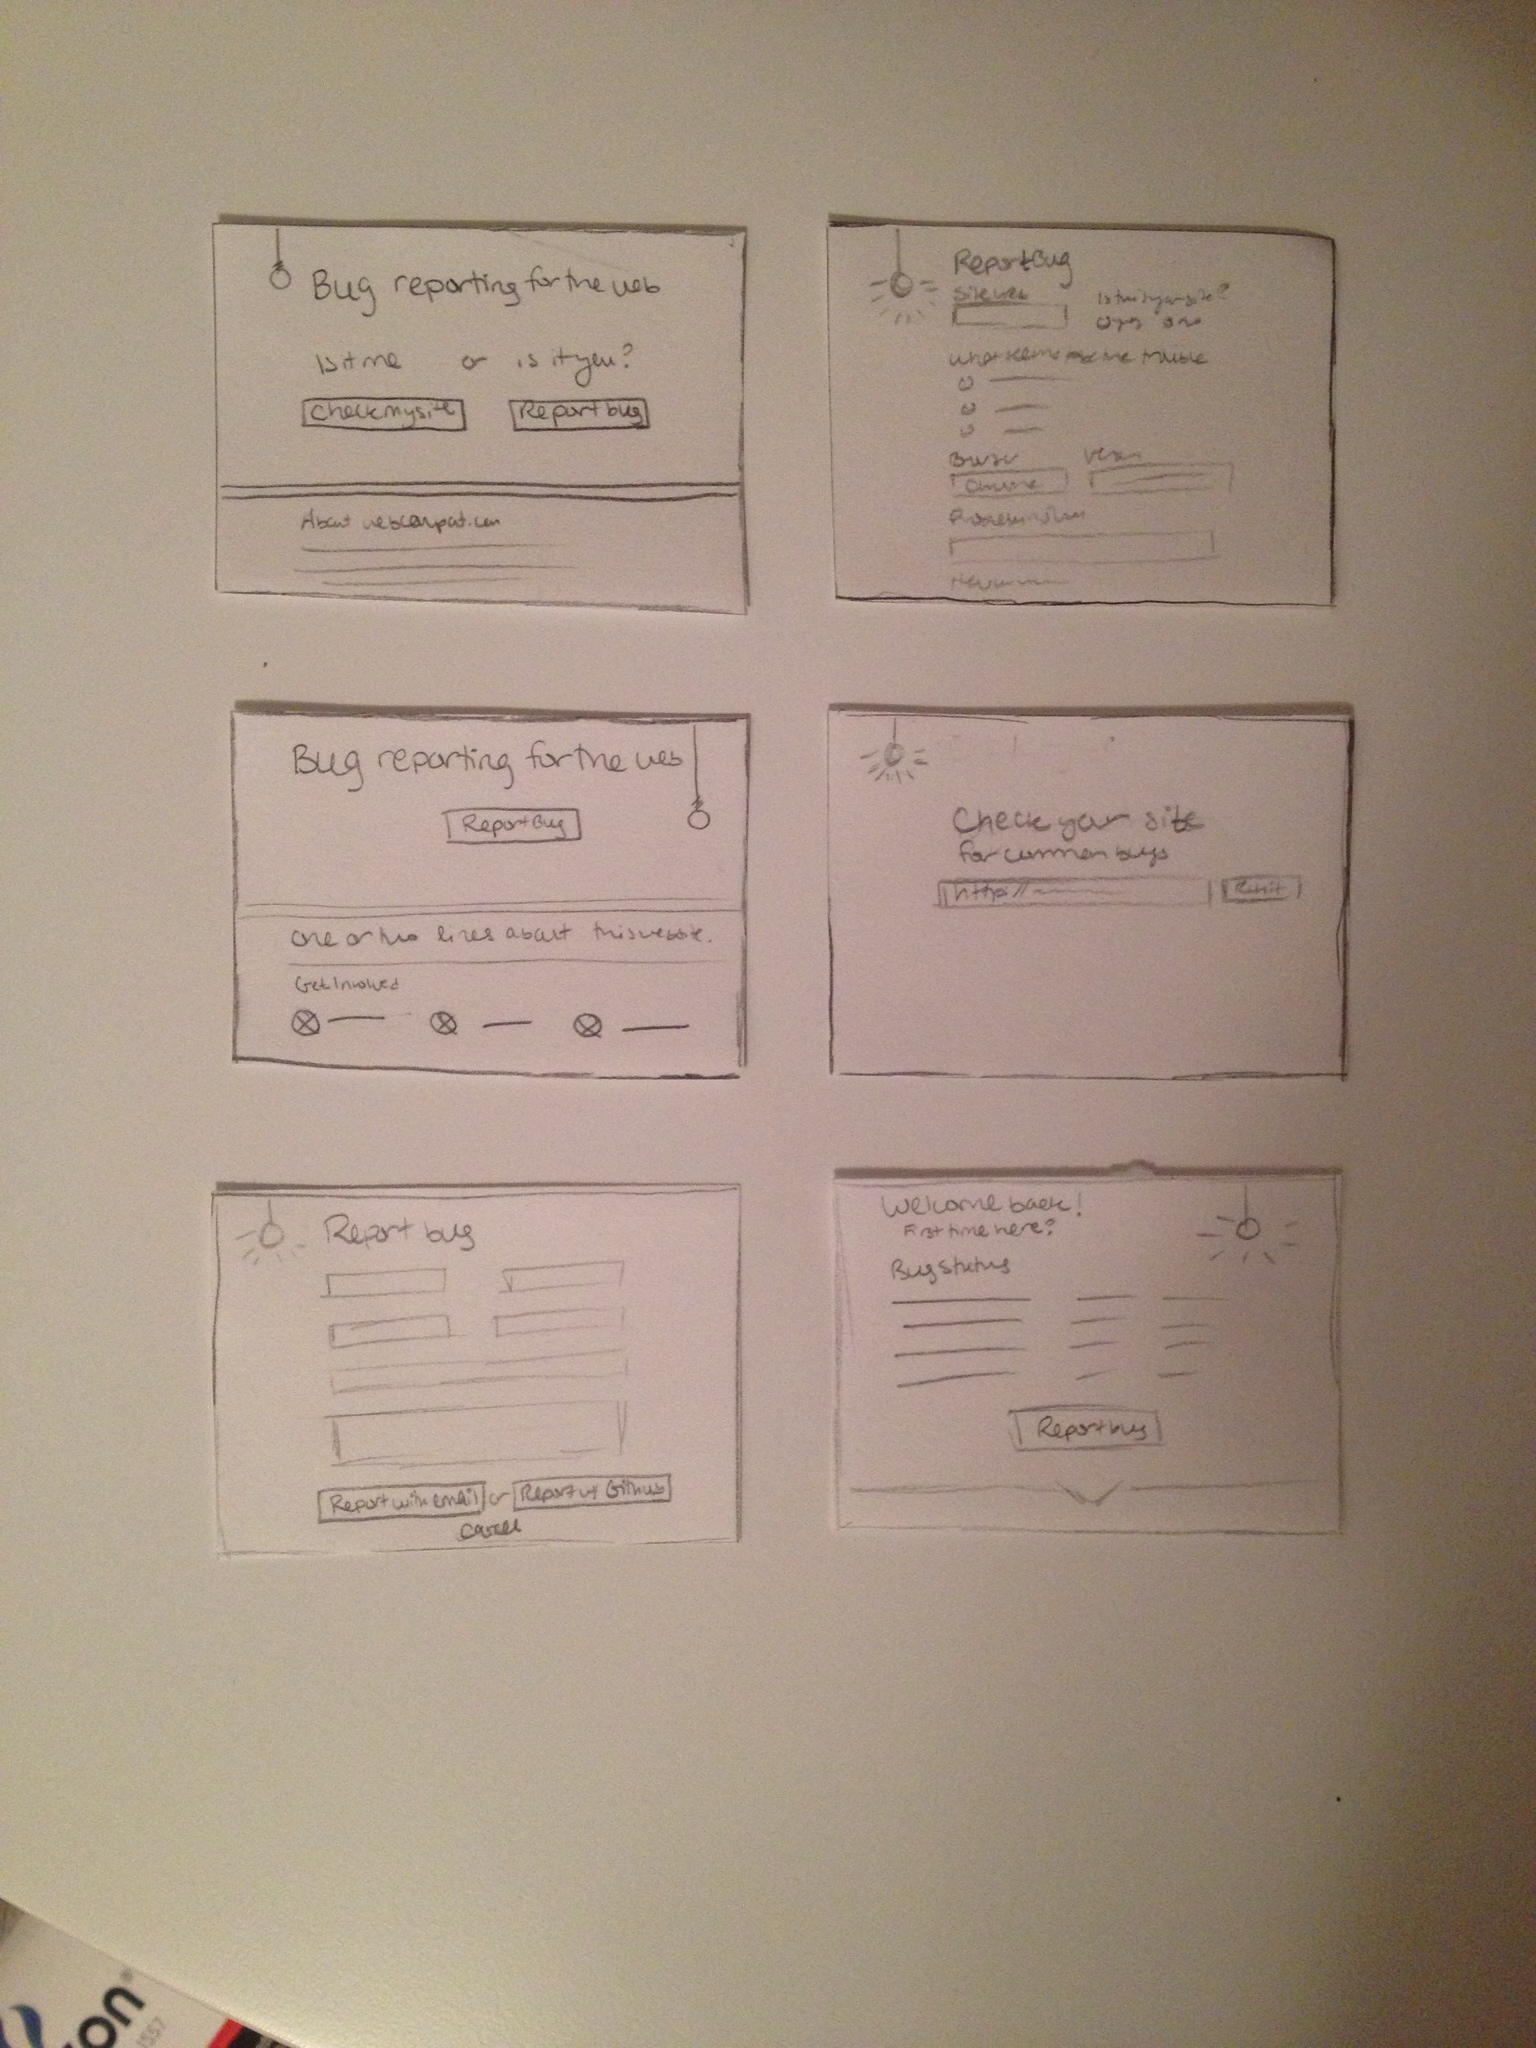 Bug reporting for the web
Is it me or is it you?
Check my site Report bug
About webcompat.com
Report Bug
Site
Is this your site?
yes no
trouble
Chrome
Bug reporting for the web
Report Bug
one or two lines about this website.
Get Involved
Check your site
for common bugs
http://
Report bug
Report with email or Report w/ Github
cancel
Welcome back!
First time here?
Bug status
Report bug
on®
1557